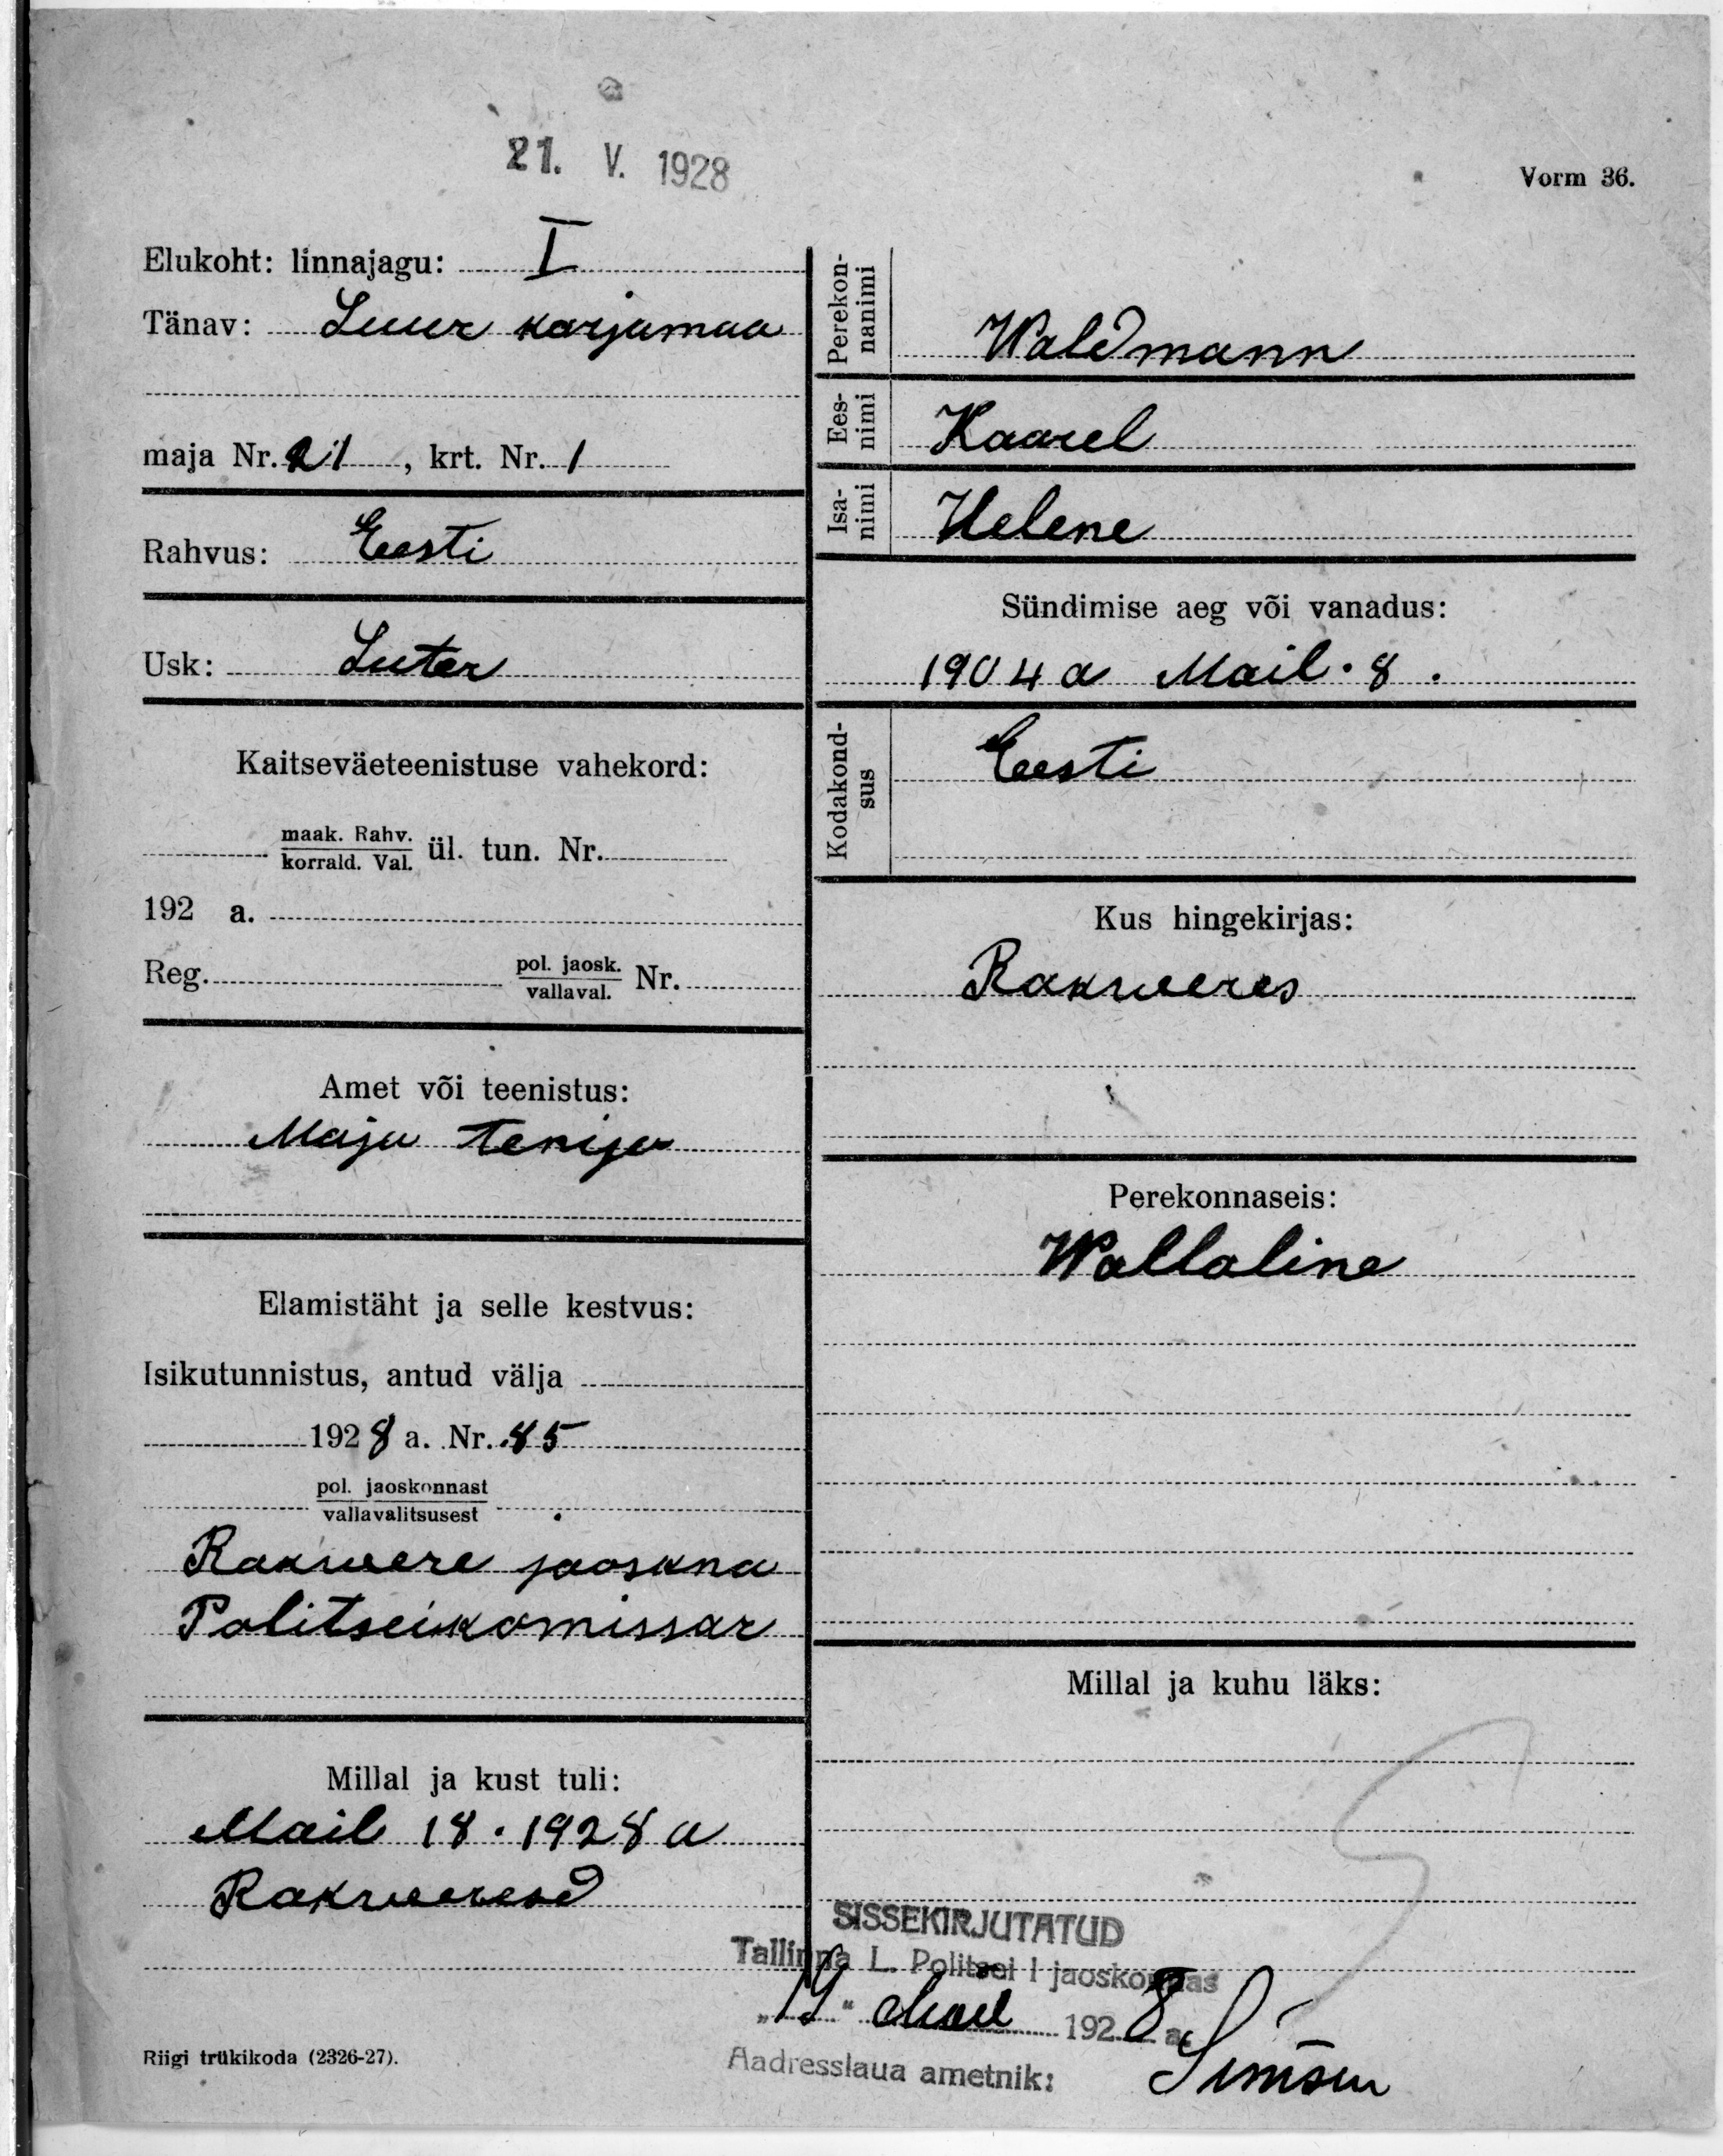 21. V. 1928
Vorm 36.
Elukoht: linnajagu: I
Tänav: Suur karjamaa
maja Nr. 21, krt. Nr. 1
Rahvus: Eesti
Usk: Luter
Kaitseväeteenistuse vahekord:
maak. Rahv.
korrald. Val. ül. tun. Nr.
192 a.
Reg. pol. jaosk. Nr.
vallaval.
Amet või teenistus:
Maja tenija
Elamistäht ja selle kestvus:
Isikutunnistus, antud välja
1928 a. Nr. 85
pol. jaoskonnast
vallavalitsusest
Rakweere jaoskna
Politseikomissar
Millal ja kust tuli:
Mail 18. 1928 a
Rakweresd
Riigi trükikoda (2326-27).
Perekon-
nanimi
Waldmann
Ees-
nimi
Kaarel
Isa-
nimi
Helene
Sündimise aeg või vanadus:
1904 a Mail. 8.
Kodakond-
sus
Eesti
Kus hingekirjas:
Rakweres
Perekonnaseis:
Wallaline
Millal ja kuhu läks:
SISSEKIRJUTATUD
Tallinna L. Politsei I jaoskonnas
"19" Mail 1928 a.
Aadresslaua ametnik: